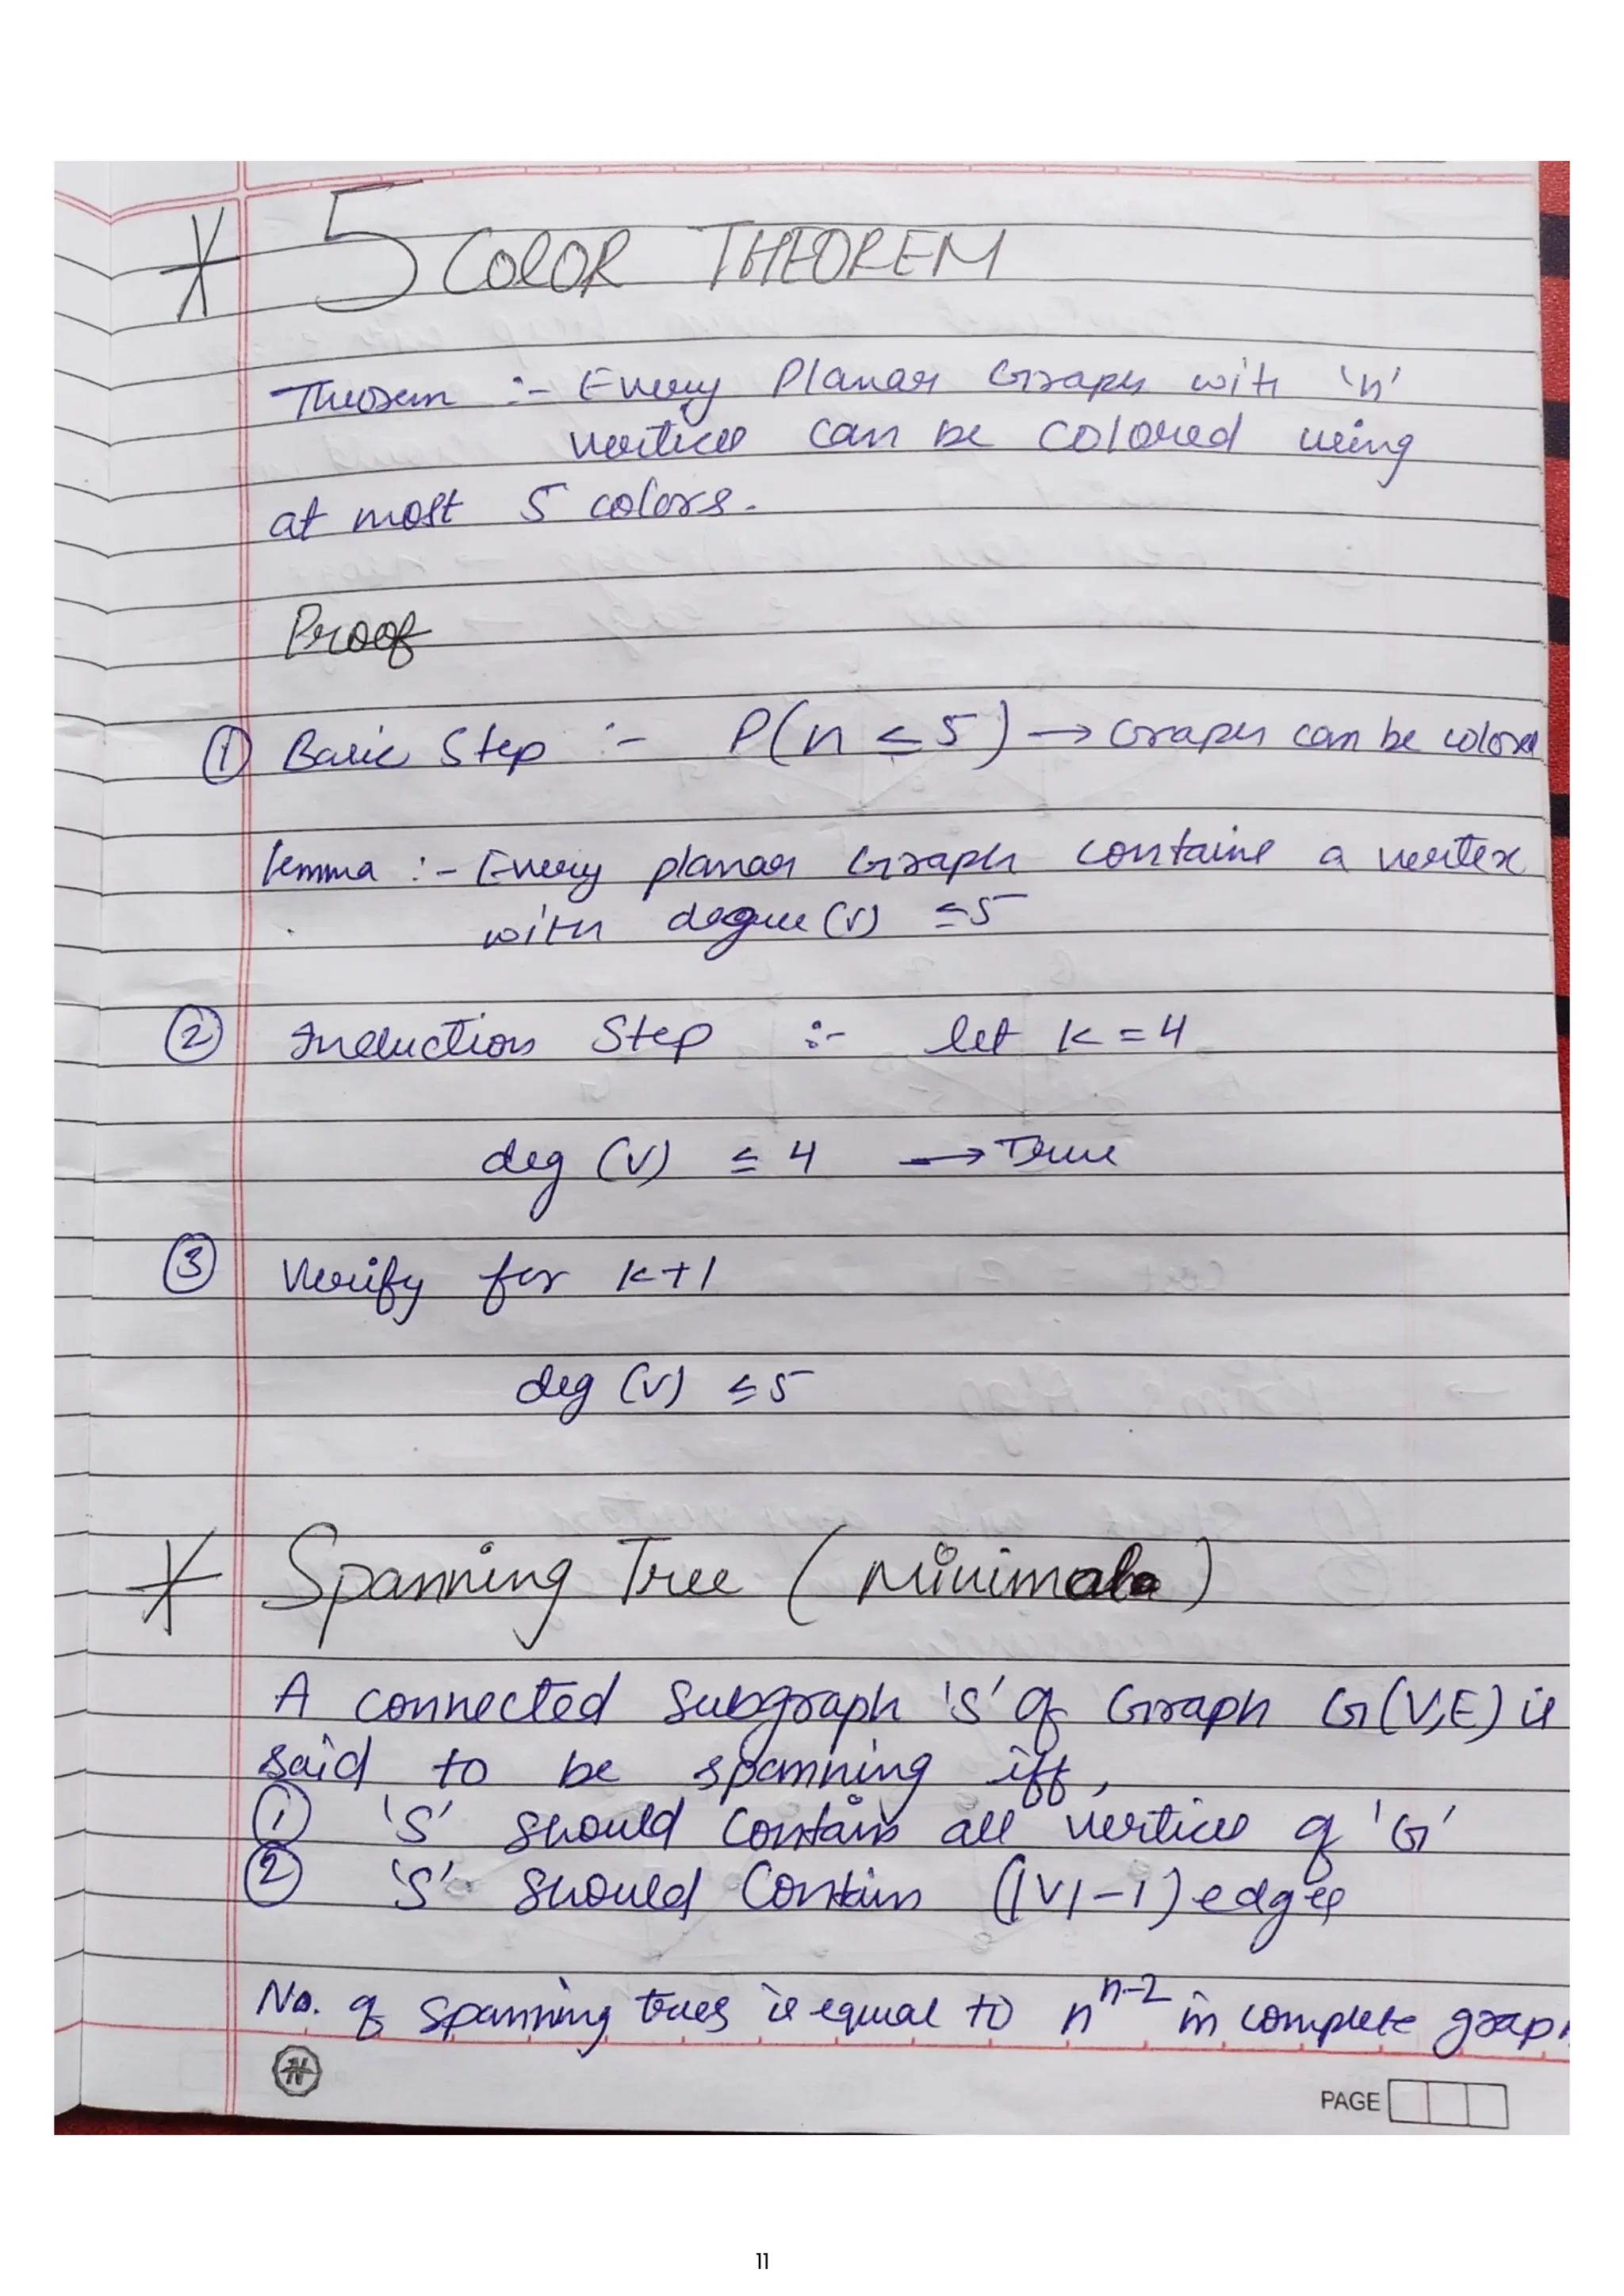 * 5 COLOR THEOREM
Theorem :- Every Planar Graph with 'n'
vertices can be colored using
at most 5 colors.
Proof
① Basic Step :- P(n ≤ 5) → Graph can be colored
lemma :- Every planar Graph contains a vertex
with degree (v) ≤ 5
② Induction Step :- let k = 4
deg (v) ≤ 4 → True
③ Verify for k+1
deg (v) ≤ 5
* Spanning Tree (Minimal)
A connected Subgraph 'S' of Graph G(V,E) is
said to be spanning iff,
① 'S' should contain all vertices of 'G'
② 'S' should Contain (|V|-1) edges
No. of spanning trees is equal to n^n-2 in complete grap
N
PAGE
11